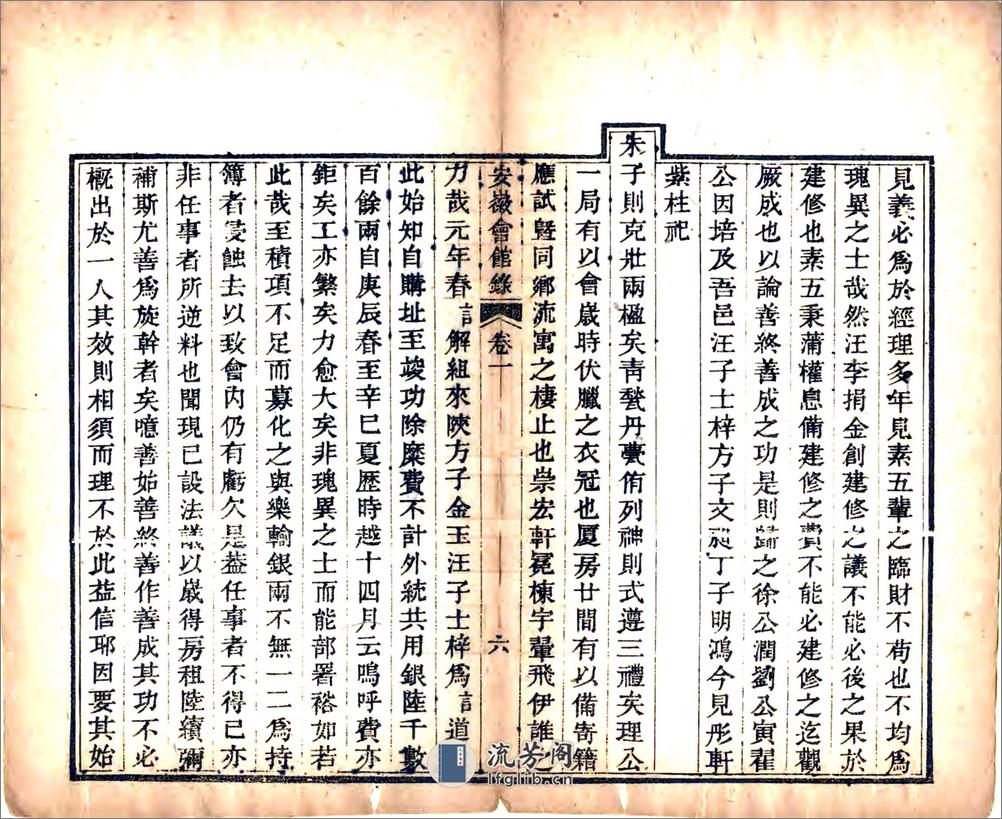 見義必爲於經理多年見素五輩之臨財不茍也不均爲
瑰異之士哉然汪李捐金創建修之議不能必後之果於
建修也素五秉蒲權息備建修之費不能必建修之迄觀
厥成也以論善終善成之功是則歸之徐公潤劉公寅翟
公因培及吾邑汪子士梓方子文起丁子明鴻今見彤軒
紫柱祀
朱子則克壯兩楹矣青甃丹甍侑列神則式遵三禮矣理公
一局有以會歲時伏臘之衣冠也厦房廿間有以備寄籍
應試曁同鄉流寓之棲止也崇宏軒冕棟宇翬飛伊誰之
安徽會館錄
卷一
六
力哉元年春言解組來陝方子金玉汪子士梓爲言道
此始知自購址至竣功除糜費不計外統共用銀陸千數
百餘兩自庚辰春至辛巳夏歷時越十四月云嗚呼費亦
鉅矣工亦繁矣力愈大矣非瑰異之士而能部署裕如若
此哉至積項不足而募化之與樂輸銀兩不無一二爲持
簿者侵蝕去以致會內仍有虧欠是葢任事者不得已亦
非任事者所逆料也聞現已設法議以歲得房租陸續彌
補斯尤善爲旋幹者矣噫善始善終善作善成其功不必
槪出於一人其效則相須而理不於此益信耶因要其始
流芳阁
lfglib.cn